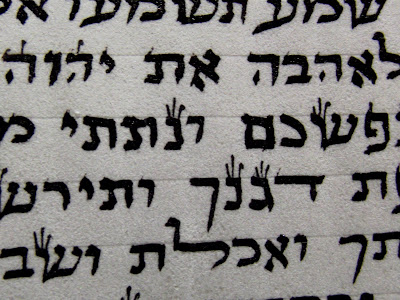 שמע תשמעו א
לאהבה את יהוה
נפשכם ונתתי מ
ת דגנך ותירש
תך ואכלת ושב